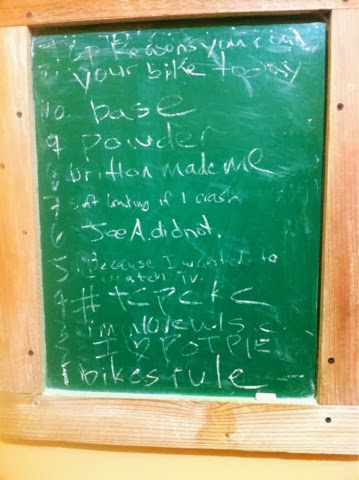 Top Reasons you rode
your bike today
10. base
9 powder
8 britton made me
7 soft landing if I crash
6 Joe A. did not.
5 Because I wanted to
watch TV.
4 #
3 I'm
2 I ♡ POTPIE
1 bikes rule